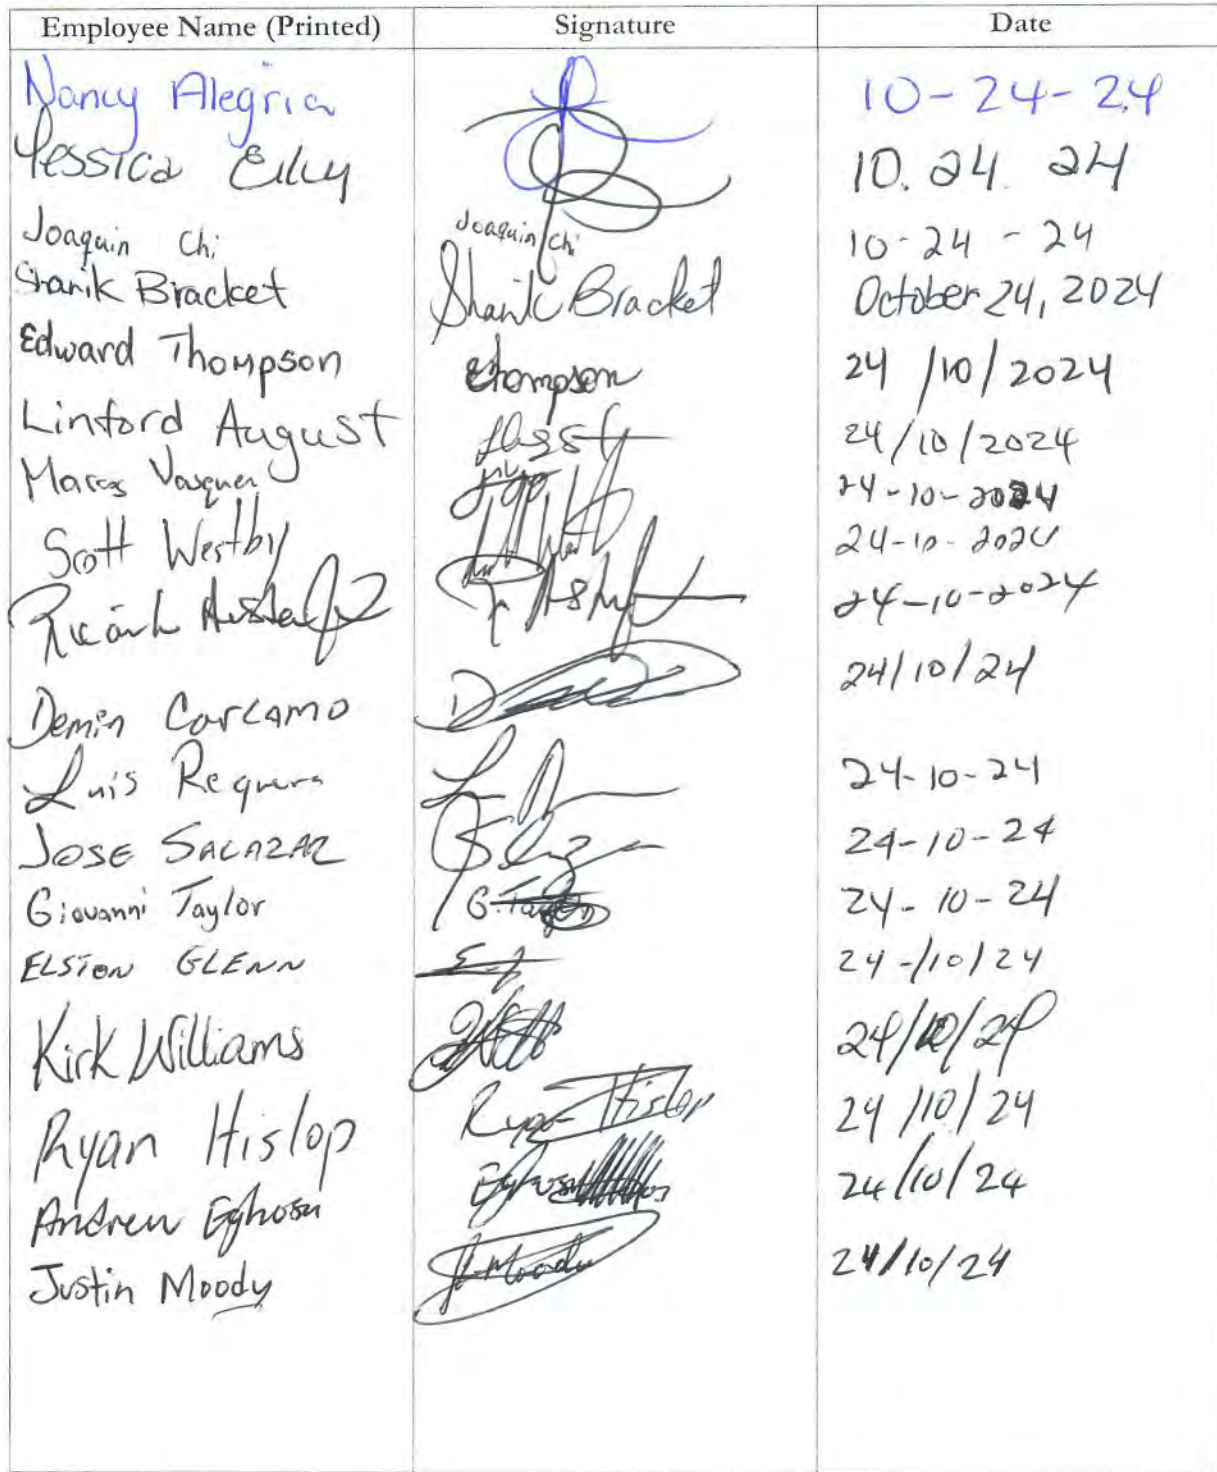 Employee Name (Printed) Signature Date
Nancy Alegria 10-24-24
Yessica 10. 24. 24
Joaquin Chi Joaquin Chi 10-24-24
Shanik Bracket Shanik Bracket October 24, 2024
Edward Thompson Ethompson 24/10/2024
Linford August 24/10/2024
Marcos Vasquez 24-10-2024
Scott Westby 24-10-2024
24-10-2024
Demin Carcamo 24/10/24
Luis Requena 24-10-24
JOSE SALAZAR 24-10-24
Giovanni Taylor G. Taylor 24-10-24
ELSTON GLENN 24-/10/24
Kirk Williams 24/10/24
Ryan Hislop Ryan Hislop 24/10/24
Andrew Eghosa 24/10/24
Justin Moody J. Moody 24/10/24